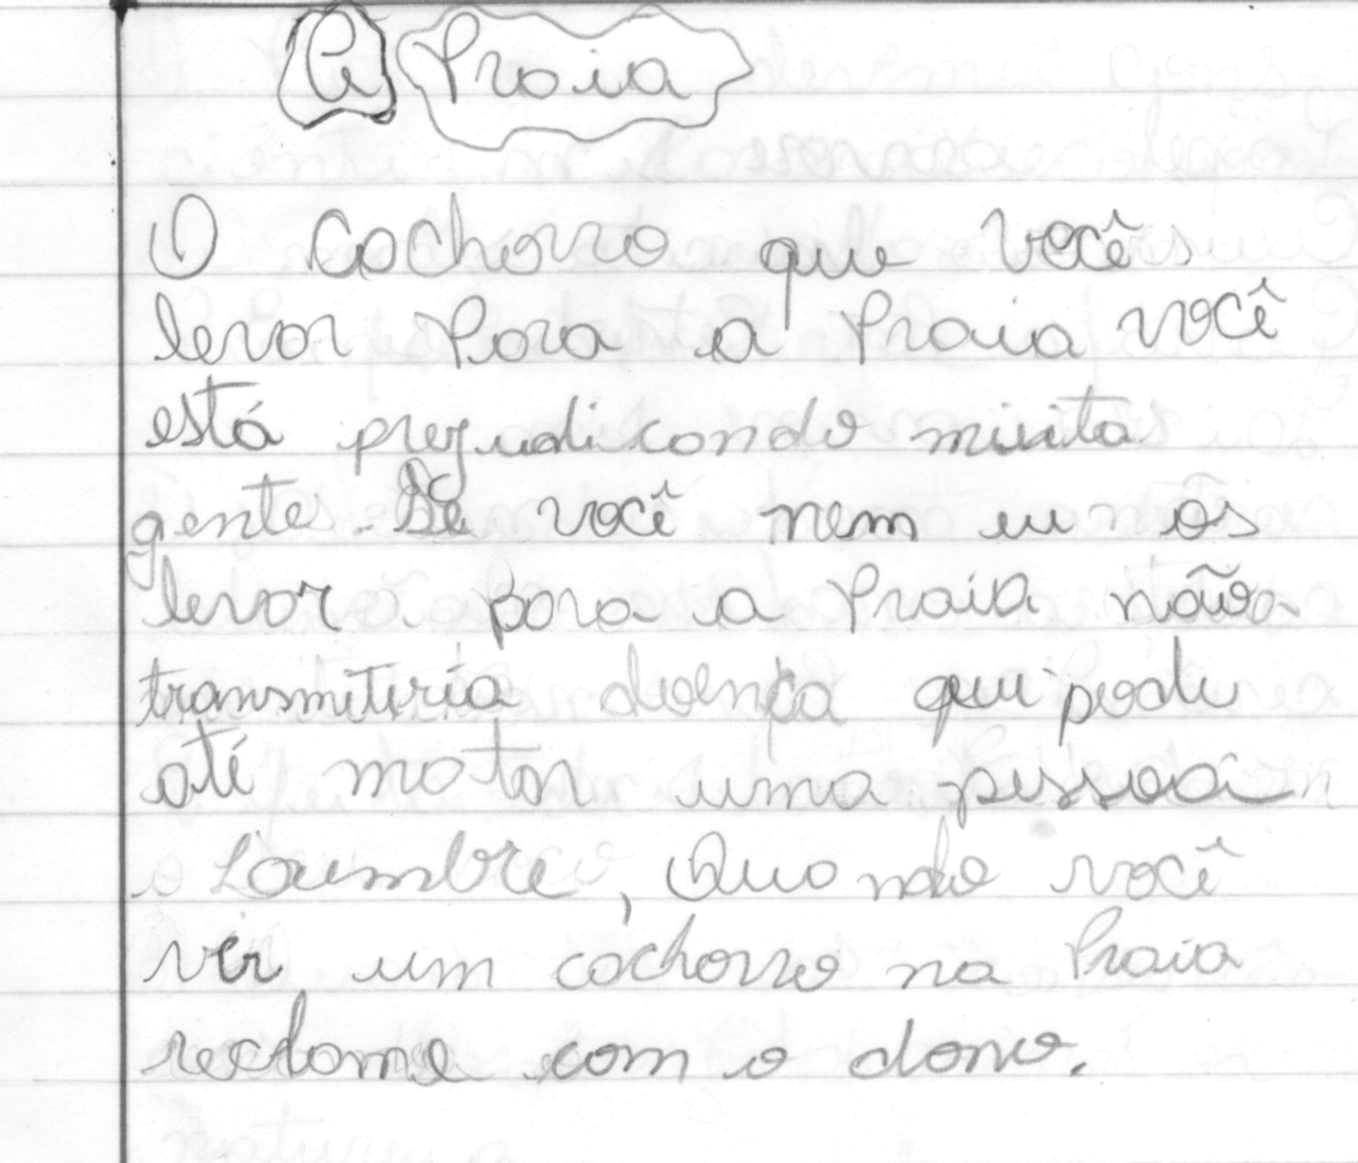 A Praia
O Cachorro que você
levar Para a Praia você
está prejudicando muita
gente. Se você nem eu os
levar para a Praia não
transmitiria doença que pode
até matar uma pessoa
Loumbre, Quando você
ver um cachorro na Praia
reclame com o dono.